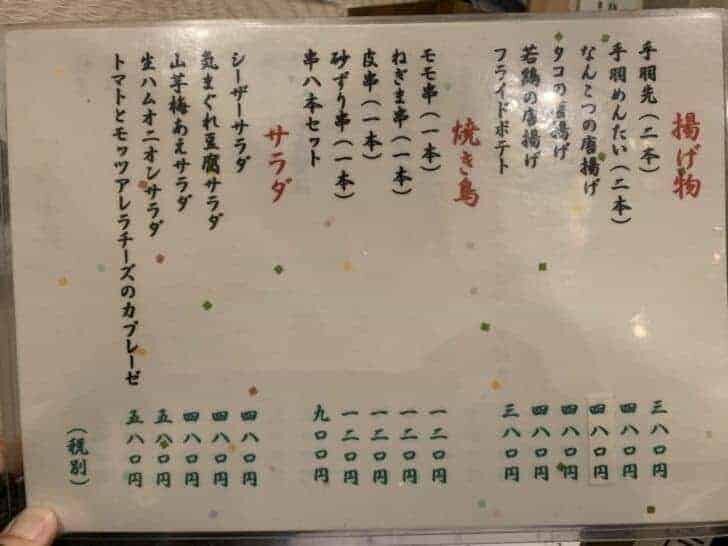 揚げ物
手羽先（二本） 三八〇円
手羽めんたい（二本） 四八〇円
なんこつの唐揚げ 四八〇円
タコの唐揚げ 四八〇円
若鶏の唐揚げ 四八〇円
フライドポテト 三八〇円
焼き鳥
モモ串（一本） 一二〇円
ねぎま串（一本） 一二〇円
皮串（一本） 一二〇円
砂ずり串（一本） 一二〇円
串八本セット 九〇〇円
サラダ
シーザーサラダ 四八〇円
気まぐれ豆腐サラダ 四八〇円
山芋梅あえサラダ 四八〇円
生ハムオニオンサラダ 五八〇円
トマトとモッツアレラチーズのカプレーゼ 五八〇円
（税別）